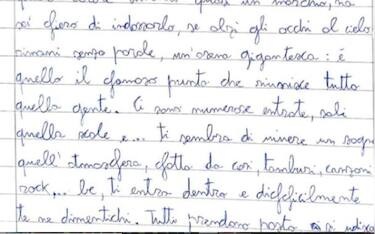 quasi un marchio, ma
sei fiero di indossarlo, se alzi gli occhi al cielo
rimani senza parole, un'arena gigantesca: è
quello il famoso punto che riunisce tutto
quella gente. Ci sono numerose entrate, sali
quella scale e... ti sembra di vivere un sogno
quell'atmosfera, fatta da cori, tamburi, canzoni
rock... be, ti entra dentro e difficilmente
te ne dimentichi. Tutti prendono posto si